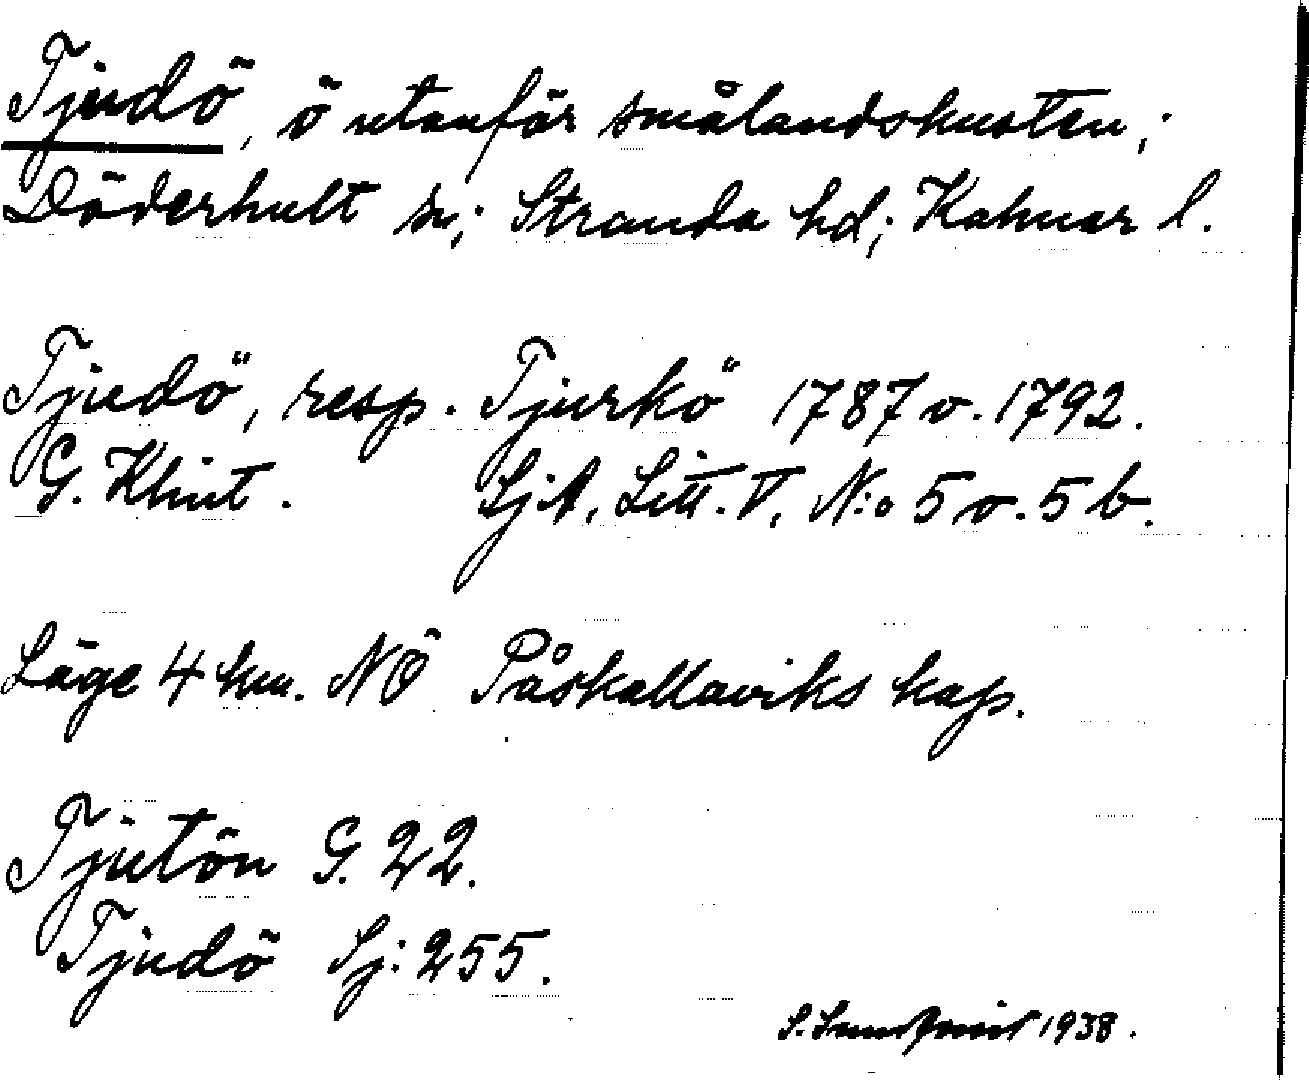 Tjudö, ö utanför smålandskusten;
Döderhult sn; Stranda hd; Kalmar l.
Tjudö", resp. Tjurkö" 1787 o. 1792.
G. Klint. SjA, Litt. V, N:o 5 o. 5 b.
Läge 4 km. NÖ Påskallaviks kap.
Tjutön G. 22.
Tjudö Sj: 255.
S. 1938.